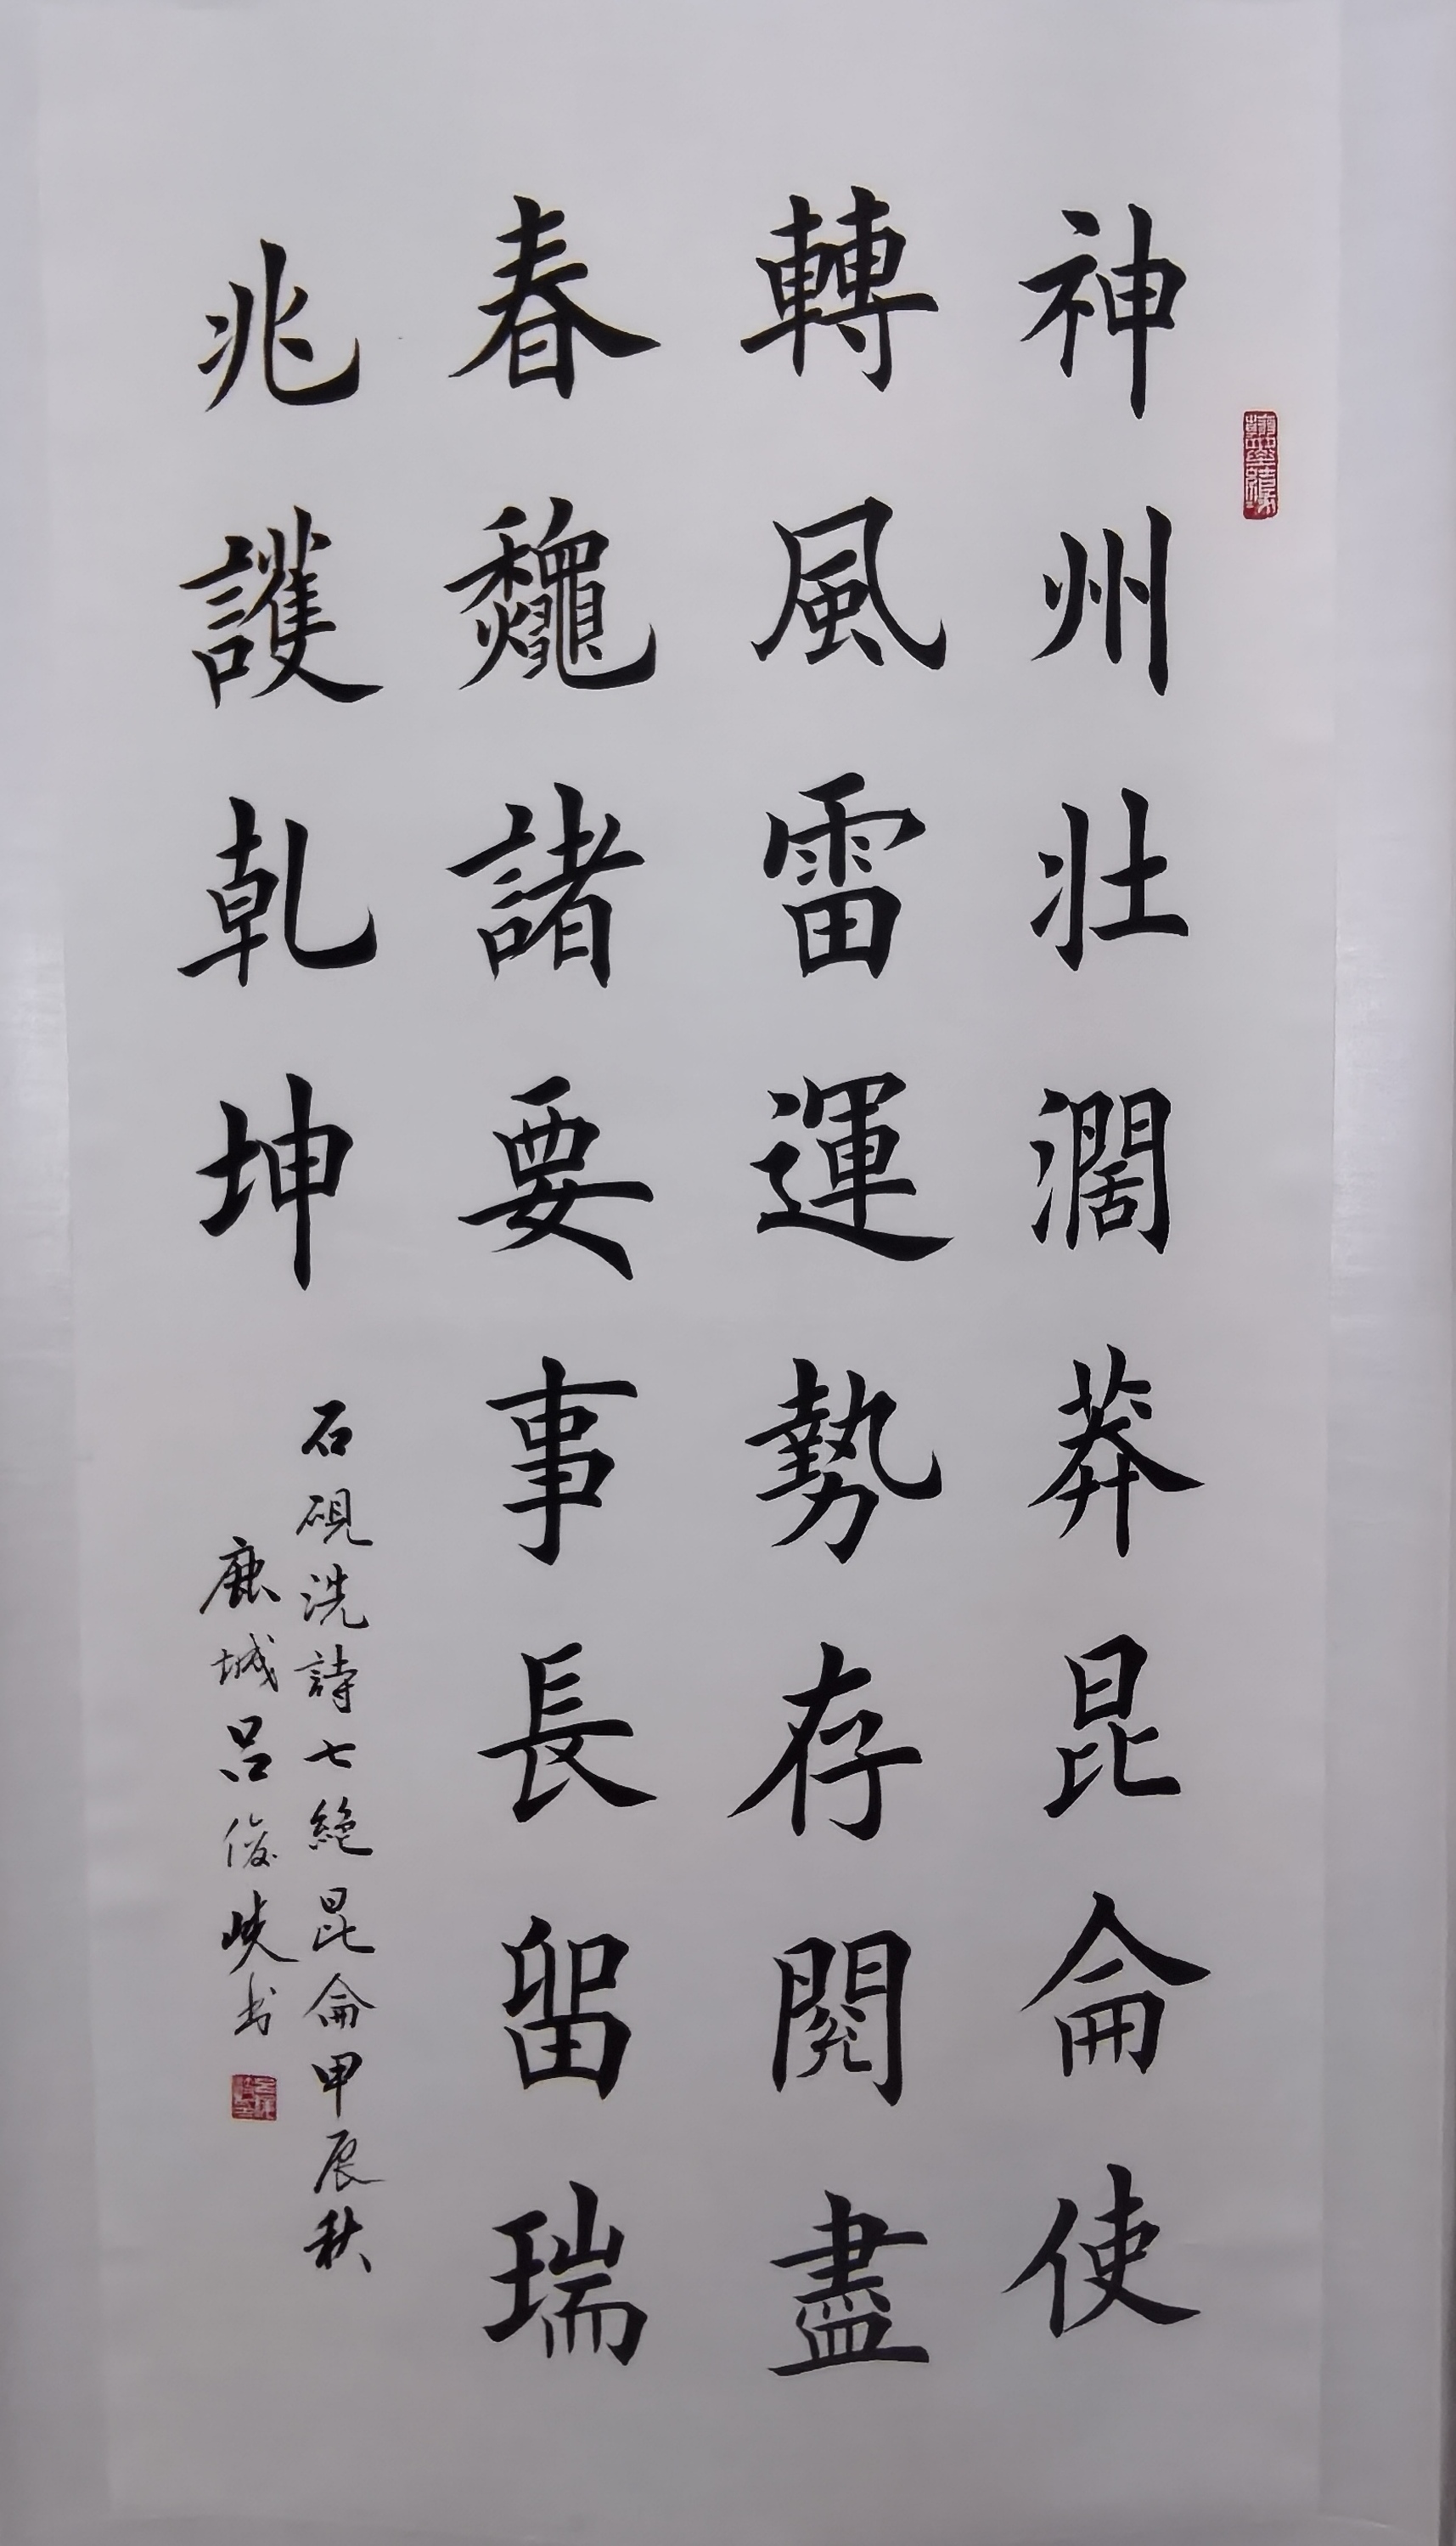 神州壯濶莽昆侖使
轉風雷運勢存閱盡
春龝諸要事長留瑞
兆護乾坤
石硯洗詩七絕昆侖甲辰秋
鹿城吕俊峡书